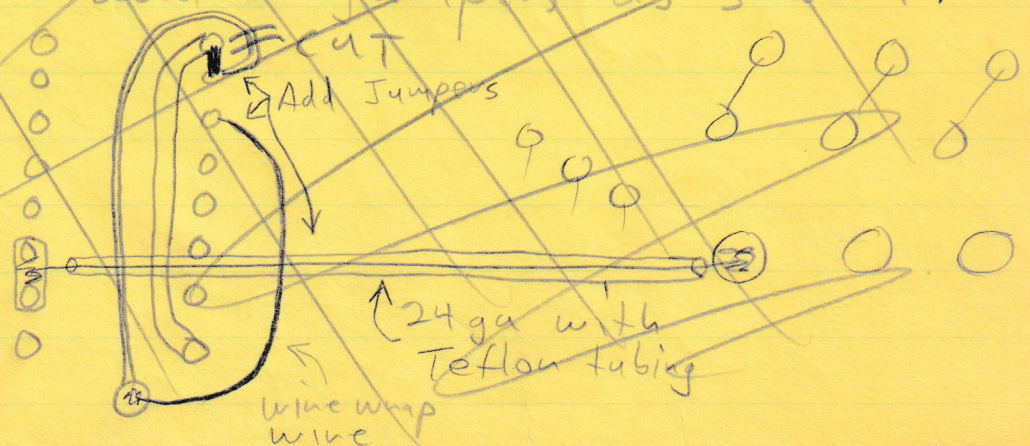 CUT
Add Jumpers
24 ga with
Teflon tubing
wire wrap
wire